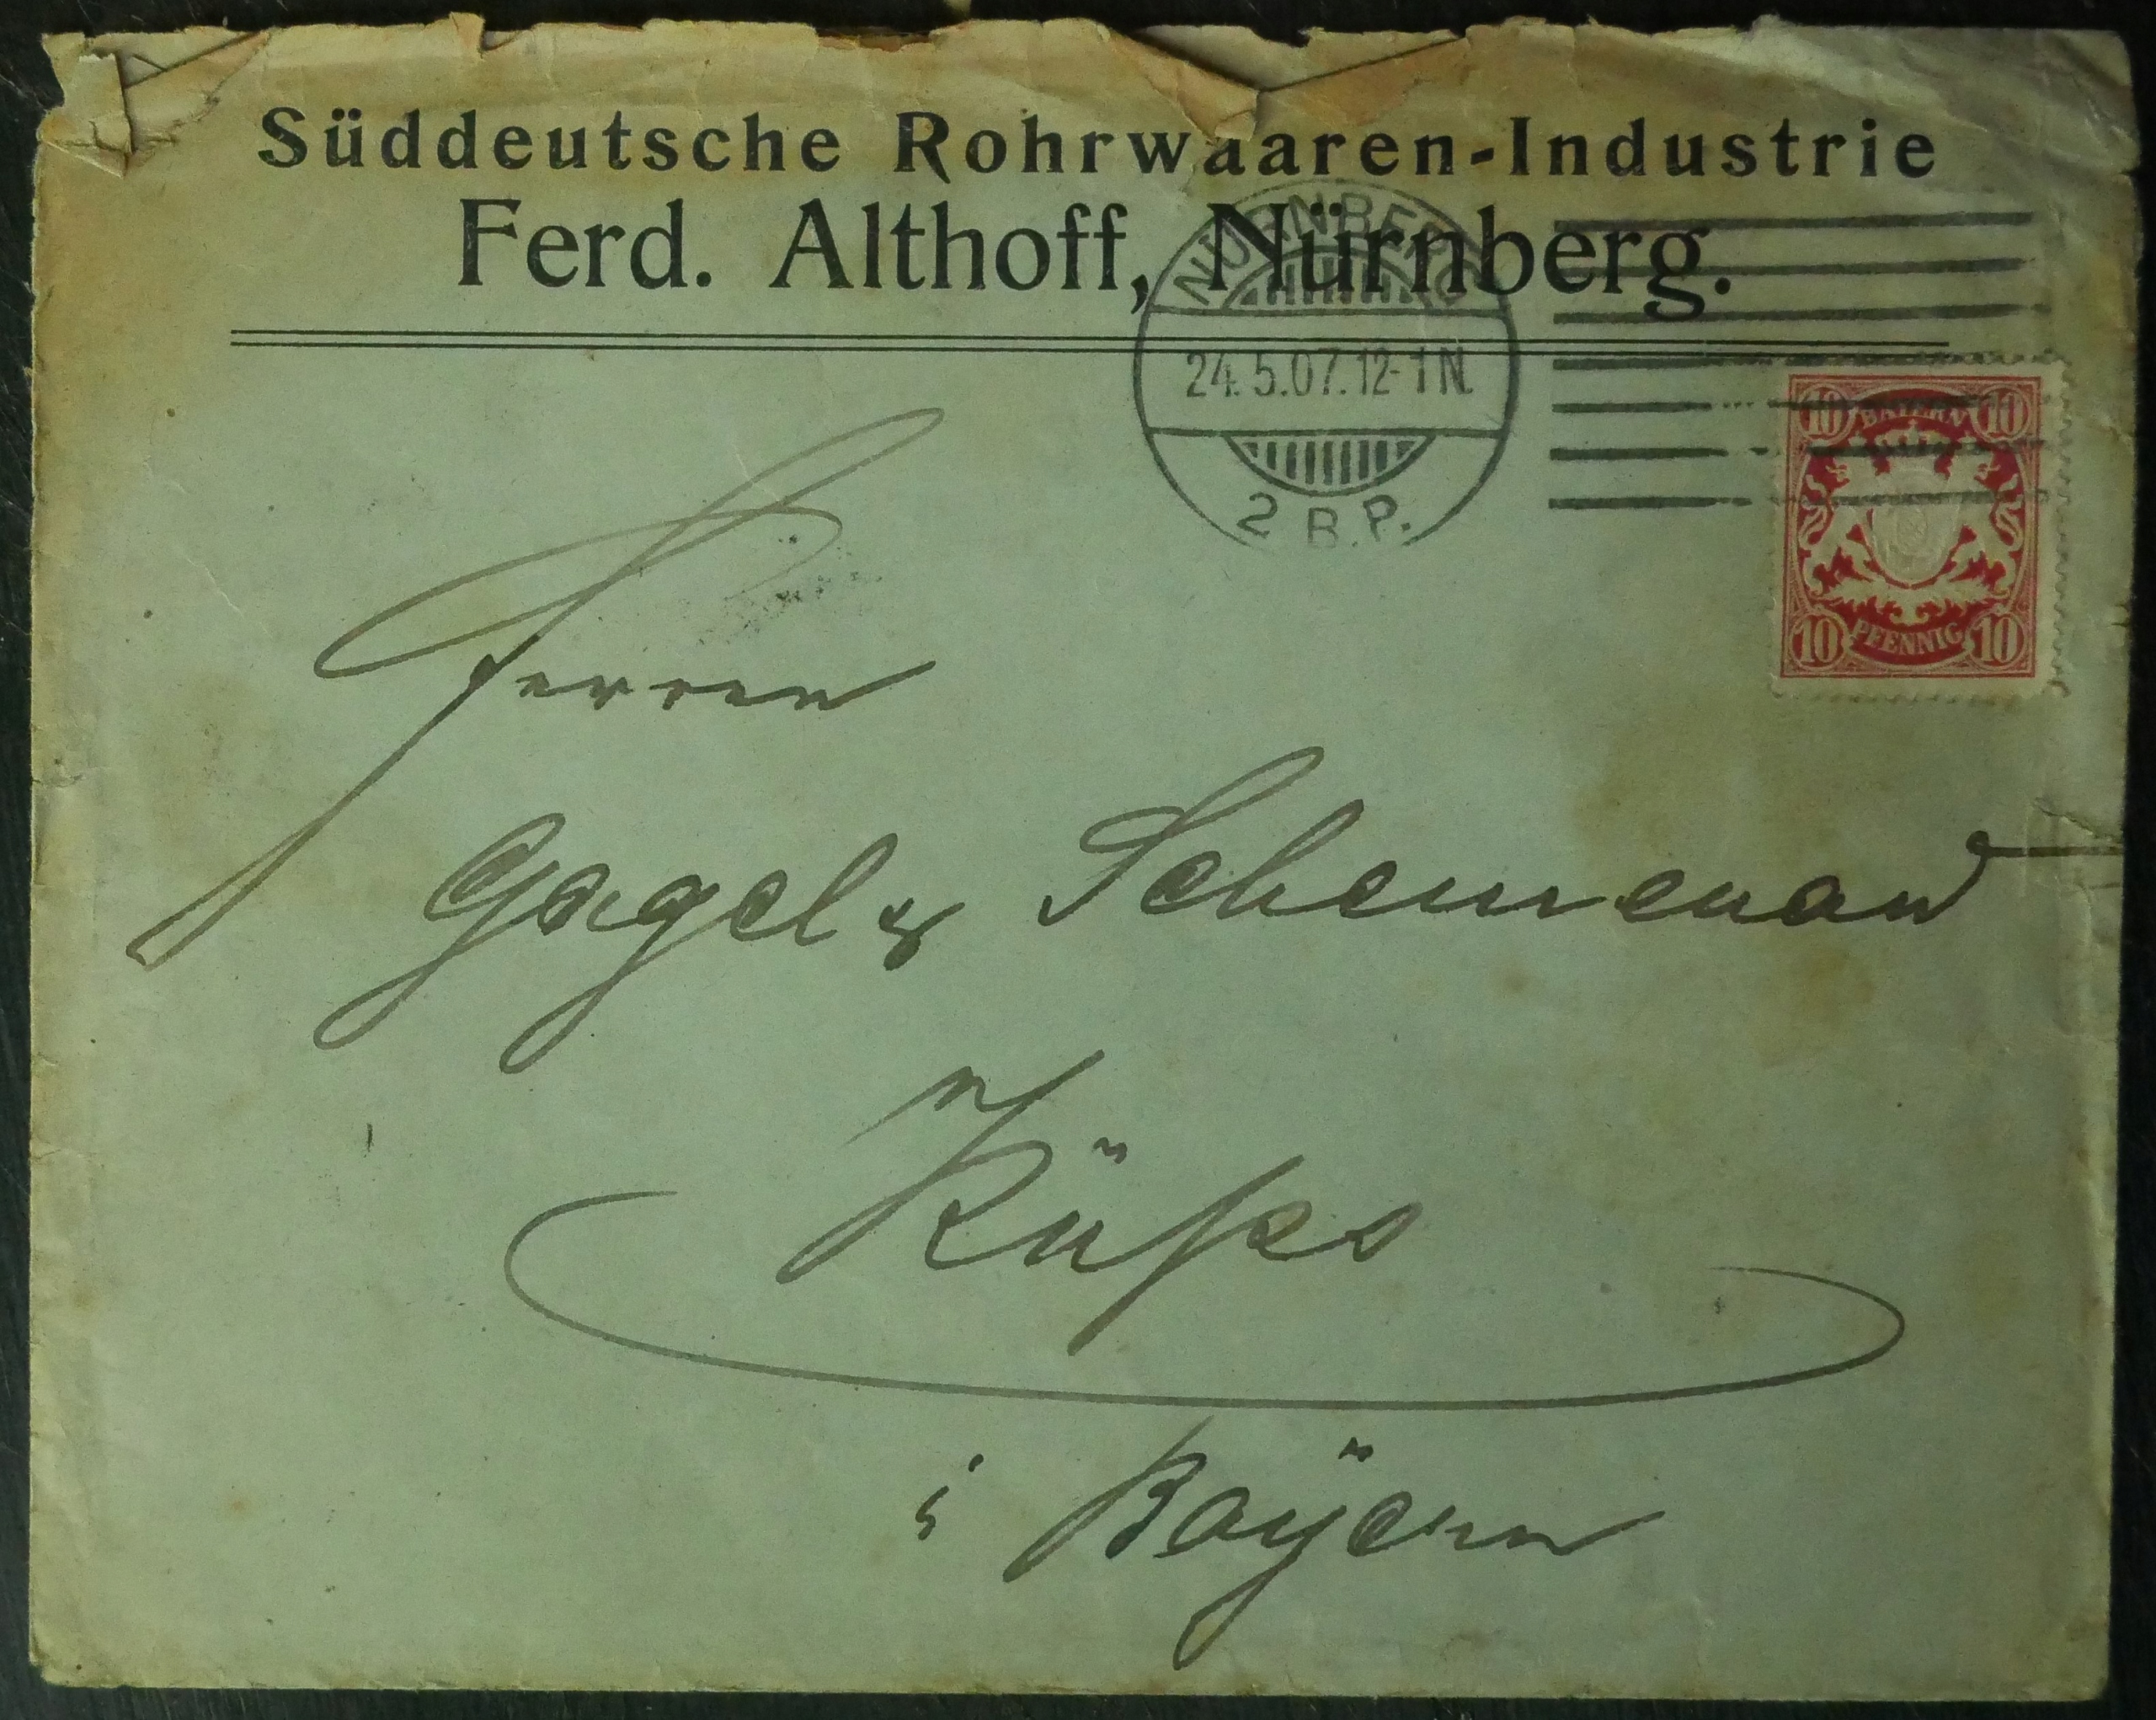 Süddeutsche Rohrwaaren-Industrie
Ferd. Althoff, Nürnberg.
NÜRNBERG
24.5.07.12-1N.
2 B.P.
10 BAYERN 10
10 PFENNIG 10
Herren
Gagel & Schemenau
Küps
i Bayern